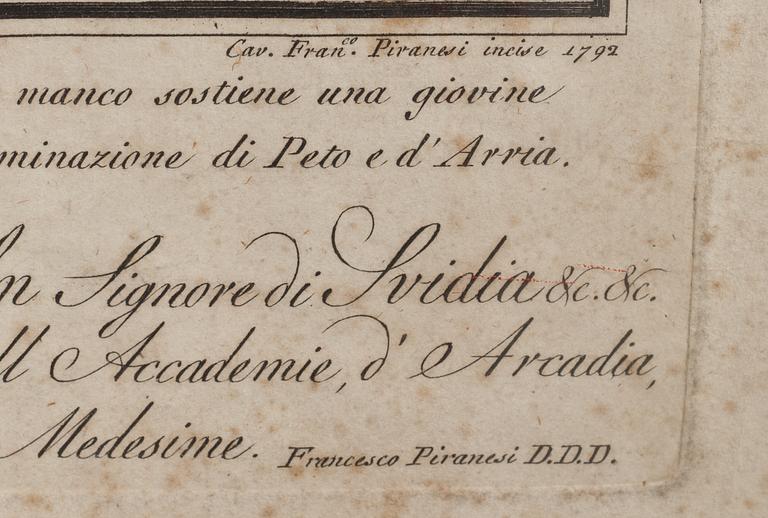 Cav. Fran.co Piranesi incise 1792
manco sostiene una giovine
minazione di Peto e d'Arria.
n Signore di Svidia &c. &c.
ll Accademie, d' Arcadia,
Medesime. Francesco Piranesi D.D.D.